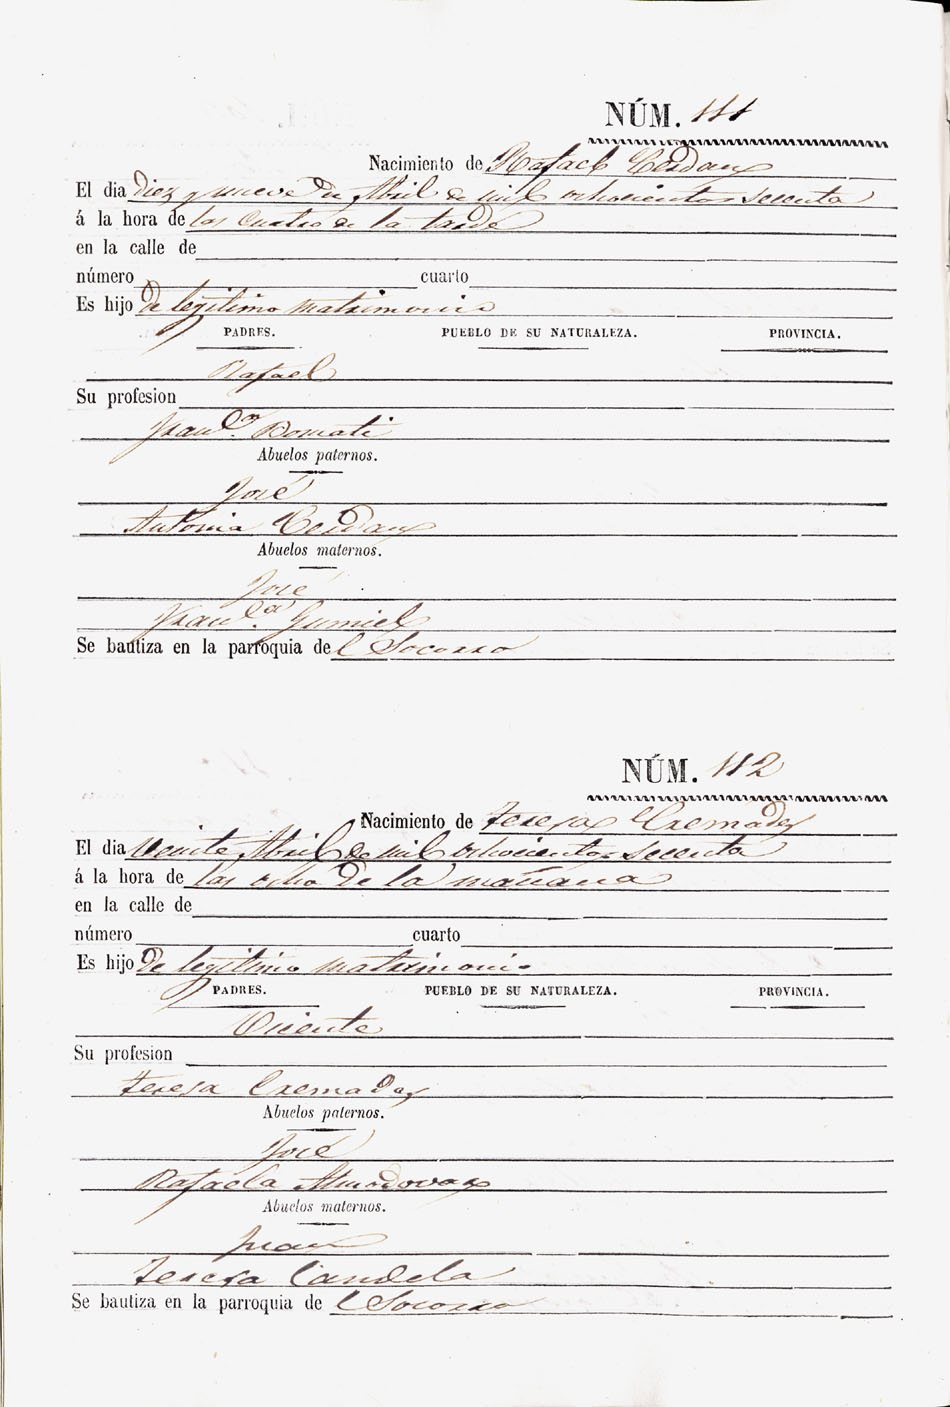 NÚM. 111
Nacimiento de Rafael Cerdan
El dia diez y nueve de Abril de mil ochocientos secenta
á la hora de las cuatro de la tarde
en la calle de
número cuarto
Es hijo de legitimo matrimonio
PADRES. PUEBLO DE SU NATURALEZA. PROVINCIA.
Rafael
Su profesion
Fran.ca Bomati
Abuelos paternos.
José
Antonia Cerdan
Abuelos maternos.
José
Fran.ca Gumiel
Se bautiza en la parroquia de l Socorro
NÚM. 112
Nacimiento de Teresa Cremades
El dia veinte Abril de mil ochocientos secenta
á la hora de las ocho de la mañana
en la calle de
número cuarto
Es hijo de legitimo matrimonio
PADRES. PUEBLO DE SU NATURALEZA. PROVINCIA.
Vicente
Su profesion
Teresa Cremades
Abuelos paternos.
José
Rafaela Almodovar
Abuelos maternos.
Juan
Teresa Candela
Se bautiza en la parroquia de l Socorro